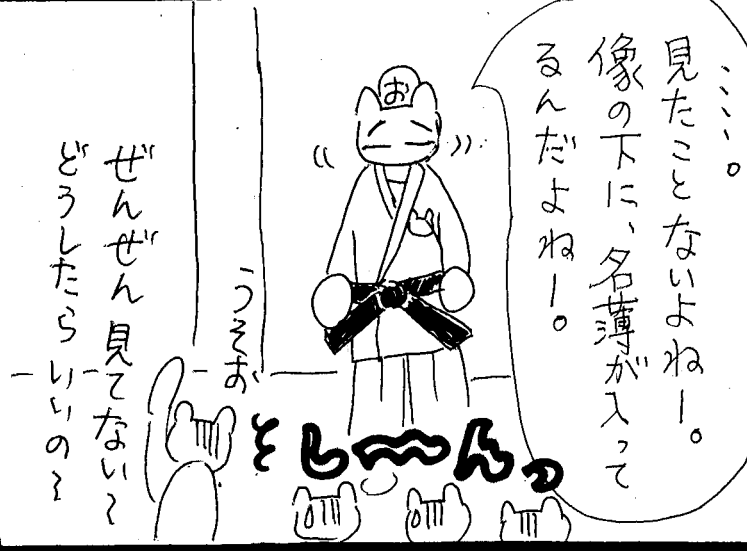 ・・・・。
見たことないよねー。
像の下に、名薄が入って
るんだよねー。
お
うそお
ど
し〜〜んっ
ぜんぜん見てない〜
どうしたらいいの〜